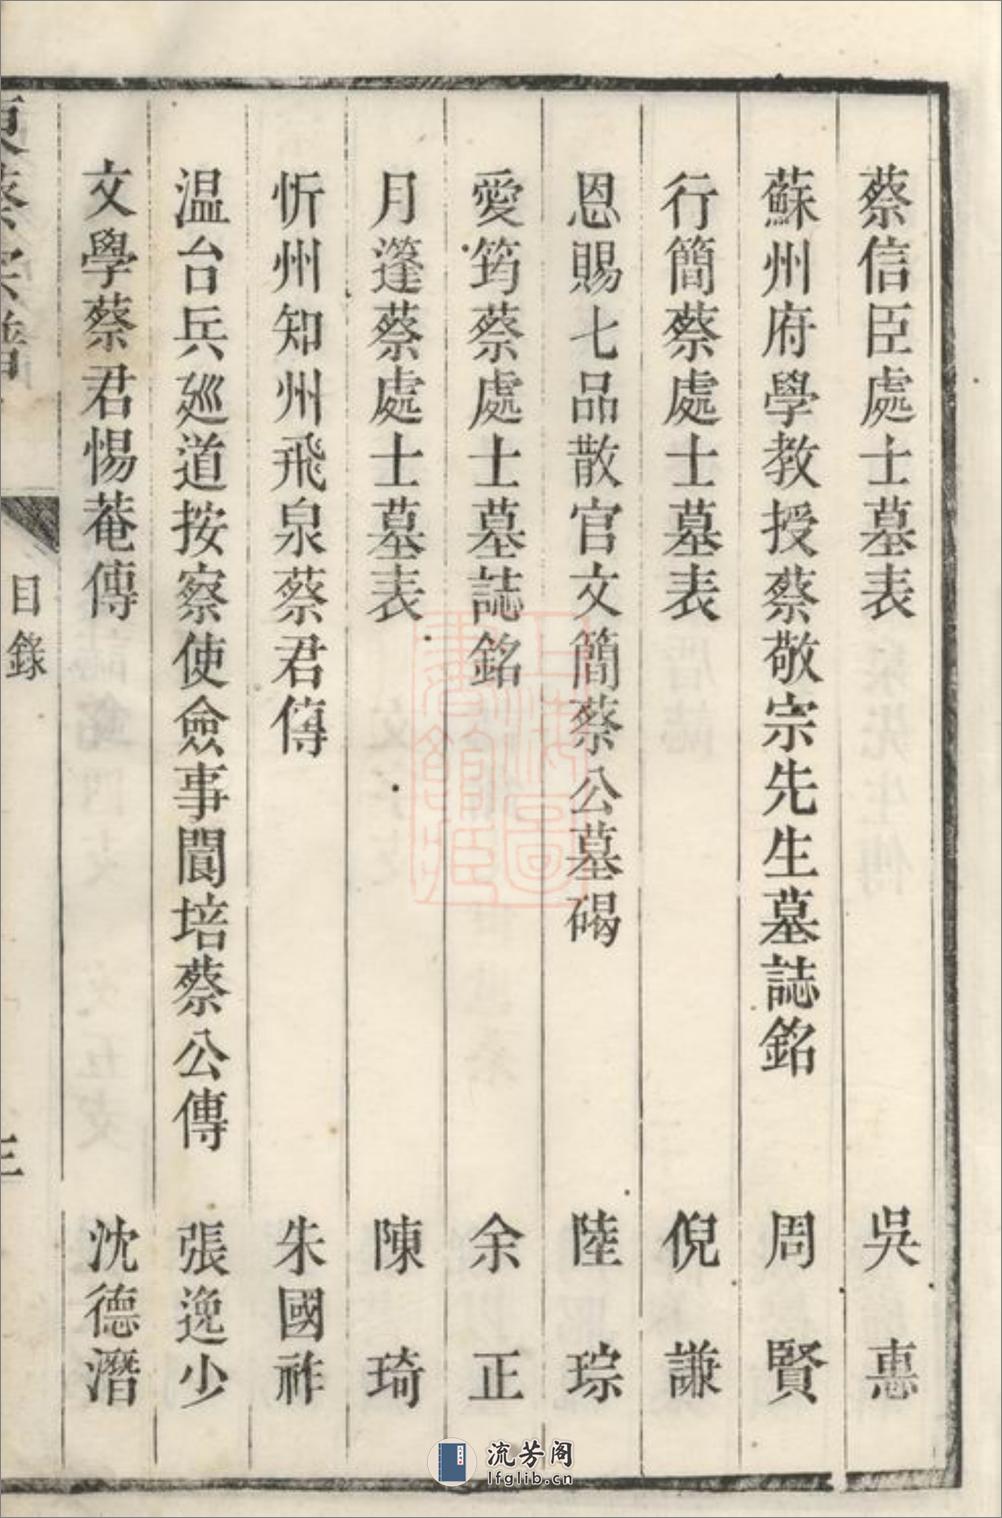 蔡信臣處士墓表 吳惠
蘇州府學教授蔡敬宗先生墓誌銘 周賢
行簡蔡處士墓表 倪謙
恩賜七品散官文簡蔡公墓碣 陸琮
愛筠蔡處士墓誌銘 余正
月篷蔡處士墓表 陳琦
忻州知州飛泉蔡君傳 朱國祚
温台兵廵道按察使僉事閬培蔡公傳 張逸少
文學蔡君惕菴傳 沈德潛
目錄
三
流芳阁
lfglib.cn